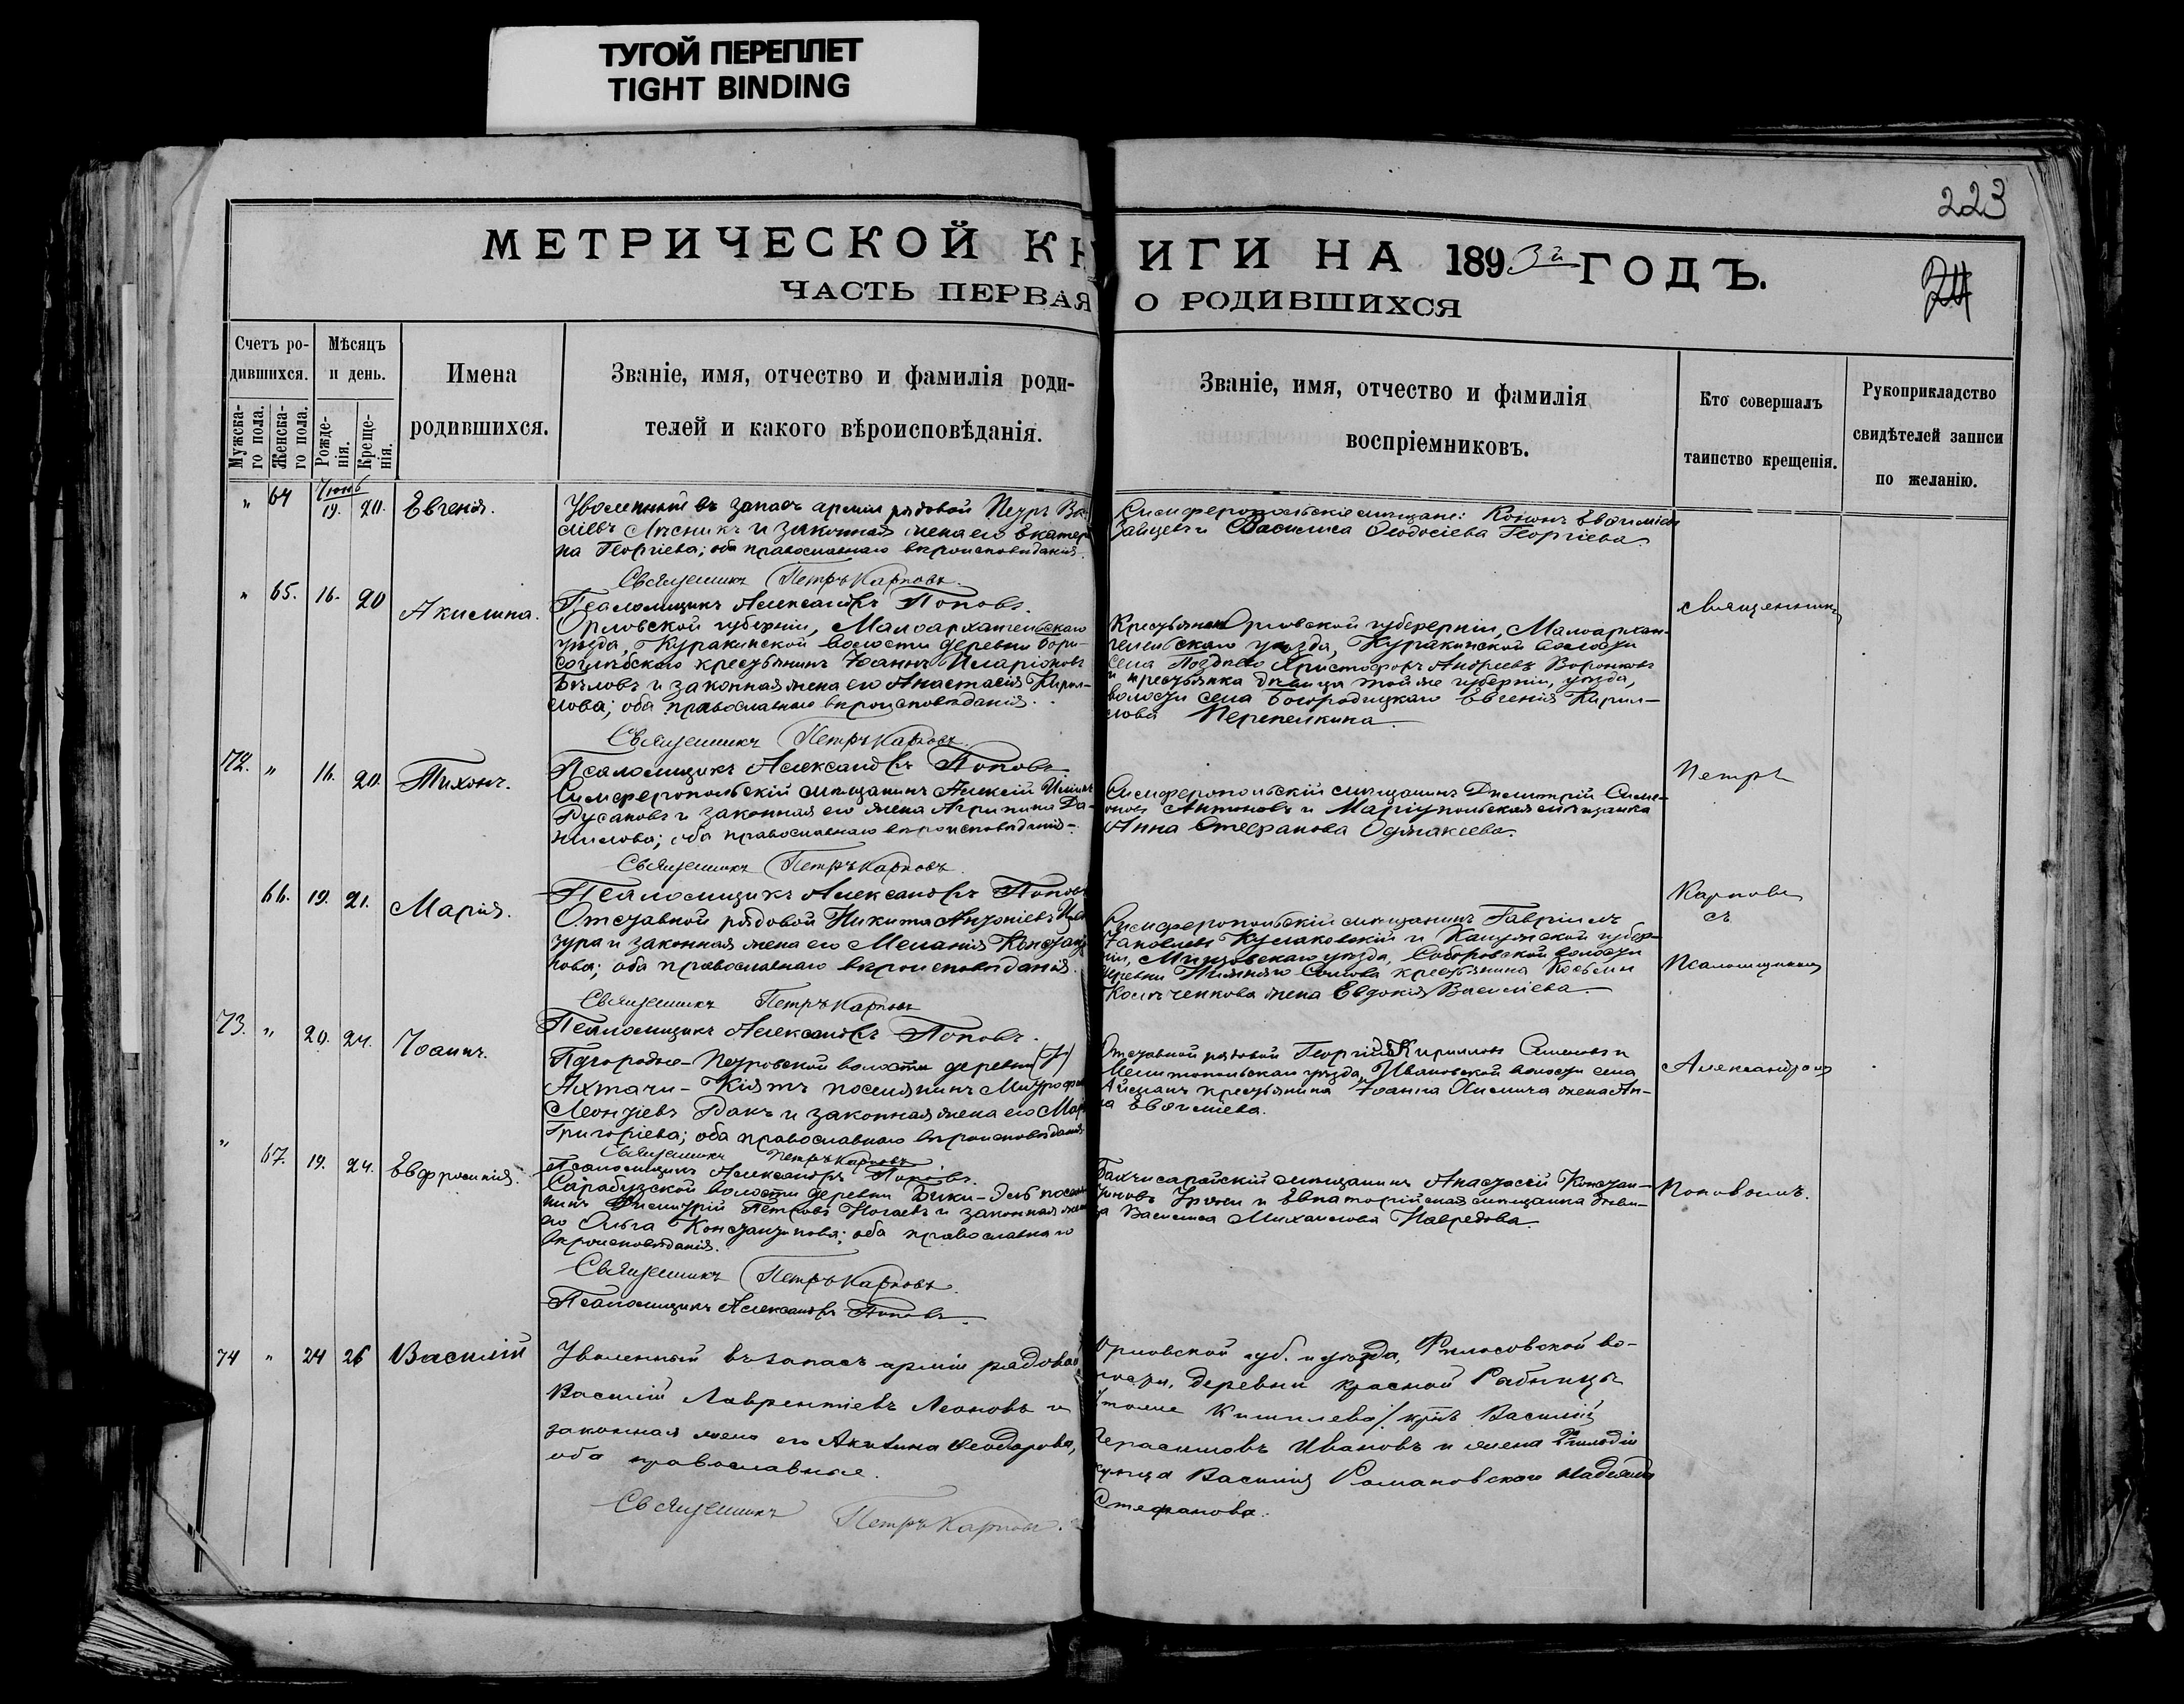 ТУГОЙ ПЕРЕПЛЕТ
TIGHT BINDING
223
МЕТРИЧЕСКОЙ КНИГИ НА 1893й ГОДЪ.
ЧАСТЬ ПЕРВАЯ О РОДИВШИХСЯ
Счетъ ро-
дившихся.
Мужска-
го пола.
Женска-
го пола.
Мѣсяцъ
и день.
Рожде-
нія.
Креще-
нія.
Имена
родившихся.
Званіе, имя, отчество и фамилія роди-
телей и какого вѣроисповѣданія.
Званіе, имя, отчество и фамилія
воспріемниковъ.
Кто совершалъ
таинство крещенія.
Рукоприкладство
свидѣтелей записи
по желанію.
" 64 Іюнь 19. 20. Евгенія.
Уволенный въ запасъ арміи рядовой Петръ Ва-
силіевъ Лѣсникъ и законная жена его Екатер
на Георгіева; оба православнаго вѣроисповѣданія.
Священникъ Петръ Карповъ.
Псаломщикъ Александръ Поповъ.
Симферопольскіе мѣщане: Кононъ Евѳиміевъ
Зайцевъ и Василиса Ѳеодосіева Георгіева.
" 65. 16. 20 Акилина.
Орловской губерніи, Малоархангельскаго
уѣзда, Куракинской волости деревни Бори-
соглѣбской крестьянинъ Іоаннъ Иларіоновъ
Бѣловъ и законная жена его Анастасія Кирил-
лова; оба православнаго вѣроисповѣданія.
Священникъ Петръ Карповъ.
Псаломщикъ Александръ Поповъ.
Крестьянинъ Орловской губерніи, Малоархан-
гельскаго уѣзда, Куракинской волости
села Позднего Христофоръ Андреевъ Воронковъ
и крестьянка дѣвица той же губерніи, уѣзда,
волости села Богородицкаго Евгенія Кирил-
лова Перепелкина.
священникъ
72. " 16. 20. Тихонъ.
Симферопольскій мѣщанинъ Алексій
Русановъ и законная его жена Агрипина Да-
ниилова; оба православнаго вѣроисповѣданія.
Священникъ Петръ Карповъ.
Псаломщикъ Александръ Поповъ
Симферопольскій мѣщанинъ Димитрій Симе-
оновъ Антоновъ и Маріупольская мѣщанка
Анна Стефанова
Петръ
66. 19. 21. Марія.
Отставной рядовой Никита Антоніевъ
зура и законная жена его Меланія Констант
нова; оба православнаго вѣроисповѣданія.
Священникъ Петръ Карповъ
Псаломщикъ Александръ Поповъ.
Симферопольскій мѣщанинъ Гавріилъ
Іаковлевъ Кулаковскій и Калужской губер-
ніи, уѣзда, волости
деревни крестьянина Косьмы
жена Евдокія Василіева.
Карповъ
съ
Псаломщикомъ
73. " 20. 24. Іоаннъ.
Подгородне-Петровской волости деревни
Ахтачи-Кіятъ поселянинъ Митрофа
Леонтіевъ и законная жена его Мар
Григоріева; оба православнаго вѣроисповѣданія
Священникъ Петръ Карповъ
Псаломщикъ Александръ Поповъ.
Отставной рядовой Георгій Кирилловъ и
Мелитопольскаго уѣзда, Ивановской волости села
крестьянина Іоанна жена Ан-
на Евѳиміева.
Александромъ
" 67. 19. 24. Евфросинія.
Сарабузской волости деревни Бики-Эль посел
нинъ Димитрій Петровъ Ногаевъ и законная жен
го Ольга Константинова; оба православнаго
вѣроисповѣданія.
Священникъ Петръ Карповъ.
Псаломщикъ Александръ Поповъ.
Бахчисарайскій мѣщанинъ Анастасій Констан-
тиновъ и Евпаторійская мѣщанка дѣви-
ца Василиса Михаилова
Поповымъ.
74 " 24 26 Василій
Уволенный въ запасъ арміи рядовой
Василій Лаврентіевъ Леоновъ и
законная жена его Акилина Ѳеодорова,
оба православные.
Священникъ Петръ Карповъ.
Орловской губ. и уѣзда, во-
лости, деревни Красной Рабницы
Василій
Герасимовъ Ивановъ и жена
купца Василія Романовскаго Надежда
Стефанова.